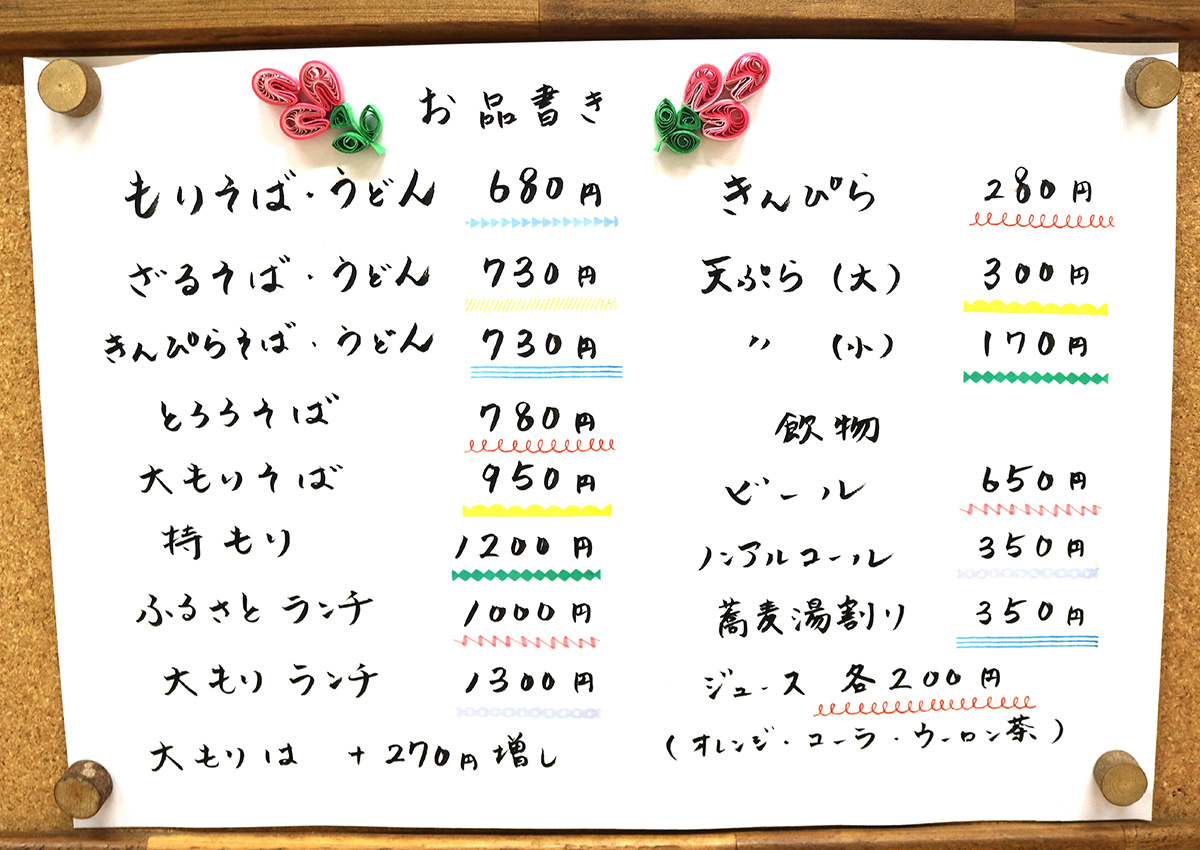 お品書き
もりそば・うどん 680円
ざるそば・うどん 730円
きんぴらそば・うどん 730円
とろろそば 780円
大もりそば 950円
特もり 1200円
ふるさとランチ 1000円
大もりランチ 1300円
大もりは +270円増し
きんぴら 280円
天ぷら(大) 300円
〃 (小) 170円
飲物
ビール 650円
ノンアルコール 350円
蕎麦湯割り 350円
ジュース 各200円
(オレンジ・コーラ・ウーロン茶)